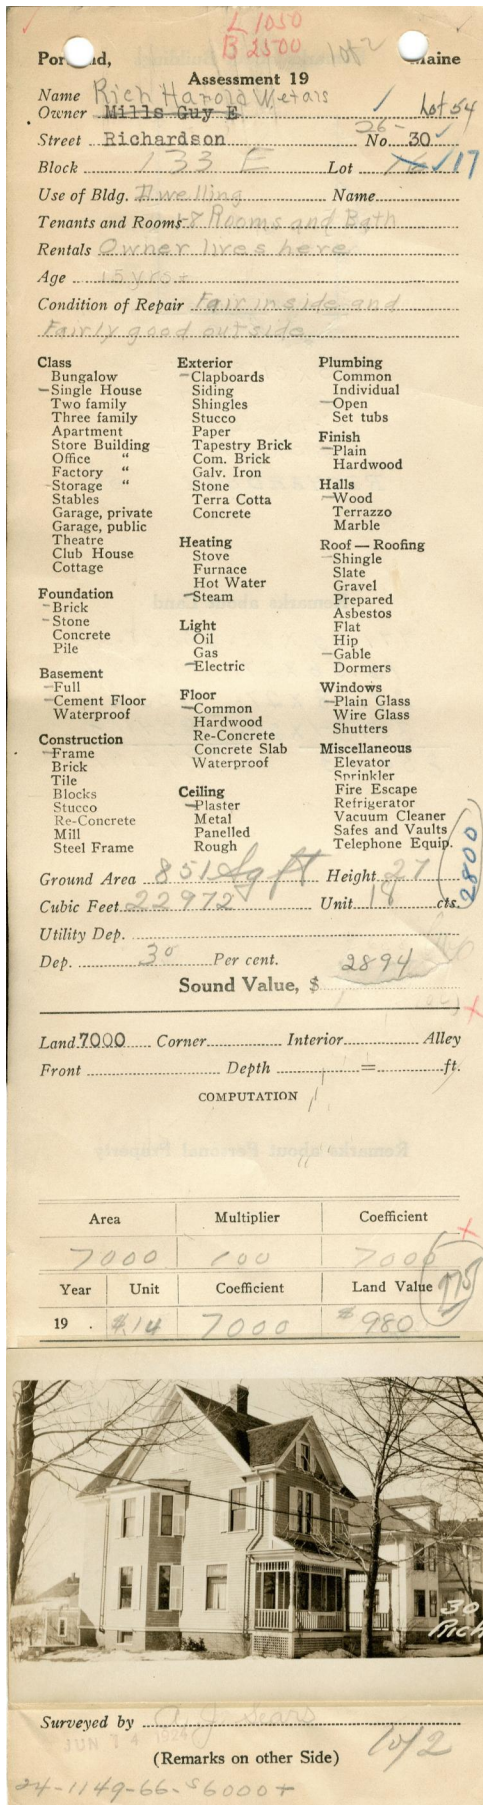 L 1050
B 2500 lot 2
Portland, Maine
Assessment 19
Name Rich Harold W etals
Owner Mills Guy E Lot 54
Street Richardson 26- No 30
Block 133 E Lot 16 17
Use of Bldg. Dwelling Name
Tenants and Rooms 1-8 Rooms and Bath
Rentals Owner lives here
Age 15 yrs ±
Condition of Repair Fair inside and
Fairly good outside
Class
Bungalow
Single House
Two family
Three family
Apartment
Store Building
Office "
Factory "
Storage "
Stables
Garage, private
Garage, public
Theatre
Club House
Cottage
Foundation
Brick
Stone
Concrete
Pile
Basement
Full
Cement Floor
Waterproof
Construction
Frame
Brick
Tile
Blocks
Stucco
Re-Concrete
Mill
Steel Frame
Exterior
Clapboards
Siding
Shingles
Stucco
Paper
Tapestry Brick
Com. Brick
Galv. Iron
Stone
Terra Cotta
Concrete
Heating
Stove
Furnace
Hot Water
Steam
Light
Oil
Gas
Electric
Floor
Common
Hardwood
Re-Concrete
Concrete Slab
Waterproof
Ceiling
Plaster
Metal
Panelled
Rough
Plumbing
Common
Individual
Open
Set tubs
Finish
Plain
Hardwood
Halls
Wood
Terrazzo
Marble
Roof — Roofing
Shingle
Slate
Gravel
Prepared
Asbestos
Flat
Hip
Gable
Dormers
Windows
Plain Glass
Wire Glass
Shutters
Miscellaneous
Elevator
Sprinkler
Fire Escape
Refrigerator
Vacuum Cleaner
Safes and Vaults
Telephone Equip.
2800
Ground Area 851 Sq ft Height 27
Cubic Feet 22972 Unit 18 cts.
Utility Dep.
Dep. 30 Per cent. 2894
Sound Value, $
Land 7000 Corner Interior Alley
Front Depth = ft.
COMPUTATION
Area Multiplier Coefficient
7000 100 7000
Year Unit Coefficient Land Value 975
19 . $.14 7000 $980
30
Rich
Surveyed by A. J. Sears
JUN 14 1924
(Remarks on other Side) 1 of 2
24-1149-66-$6000+